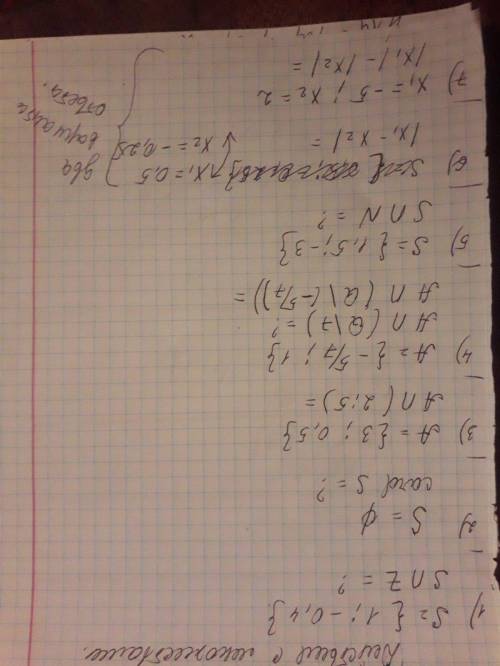 Действие с множествами.
1) S = { 1 ; - 0,4 }
S ∩ Z = ?
2) S = ϕ
card S = ?
3) A = { 3 ; 0,5 }
A ∩ ( 2 ; 5 ) =
4) A = { - 5/7 ; 1 }
A ∩ ( Q \ 7 ) = ?
A ∩ ( Q \ ( - 5/7 ) ) =
5) S = { 1,5 ; - 3 }
S ∩ N = ?
6) x₁ = 0,5
x₂ = - 0,25
| x₁ - x₂ | =
7) x₁ = - 5 ; x₂ = 2
| x₁ | - | x₂ | =
два
варианта
ответа.